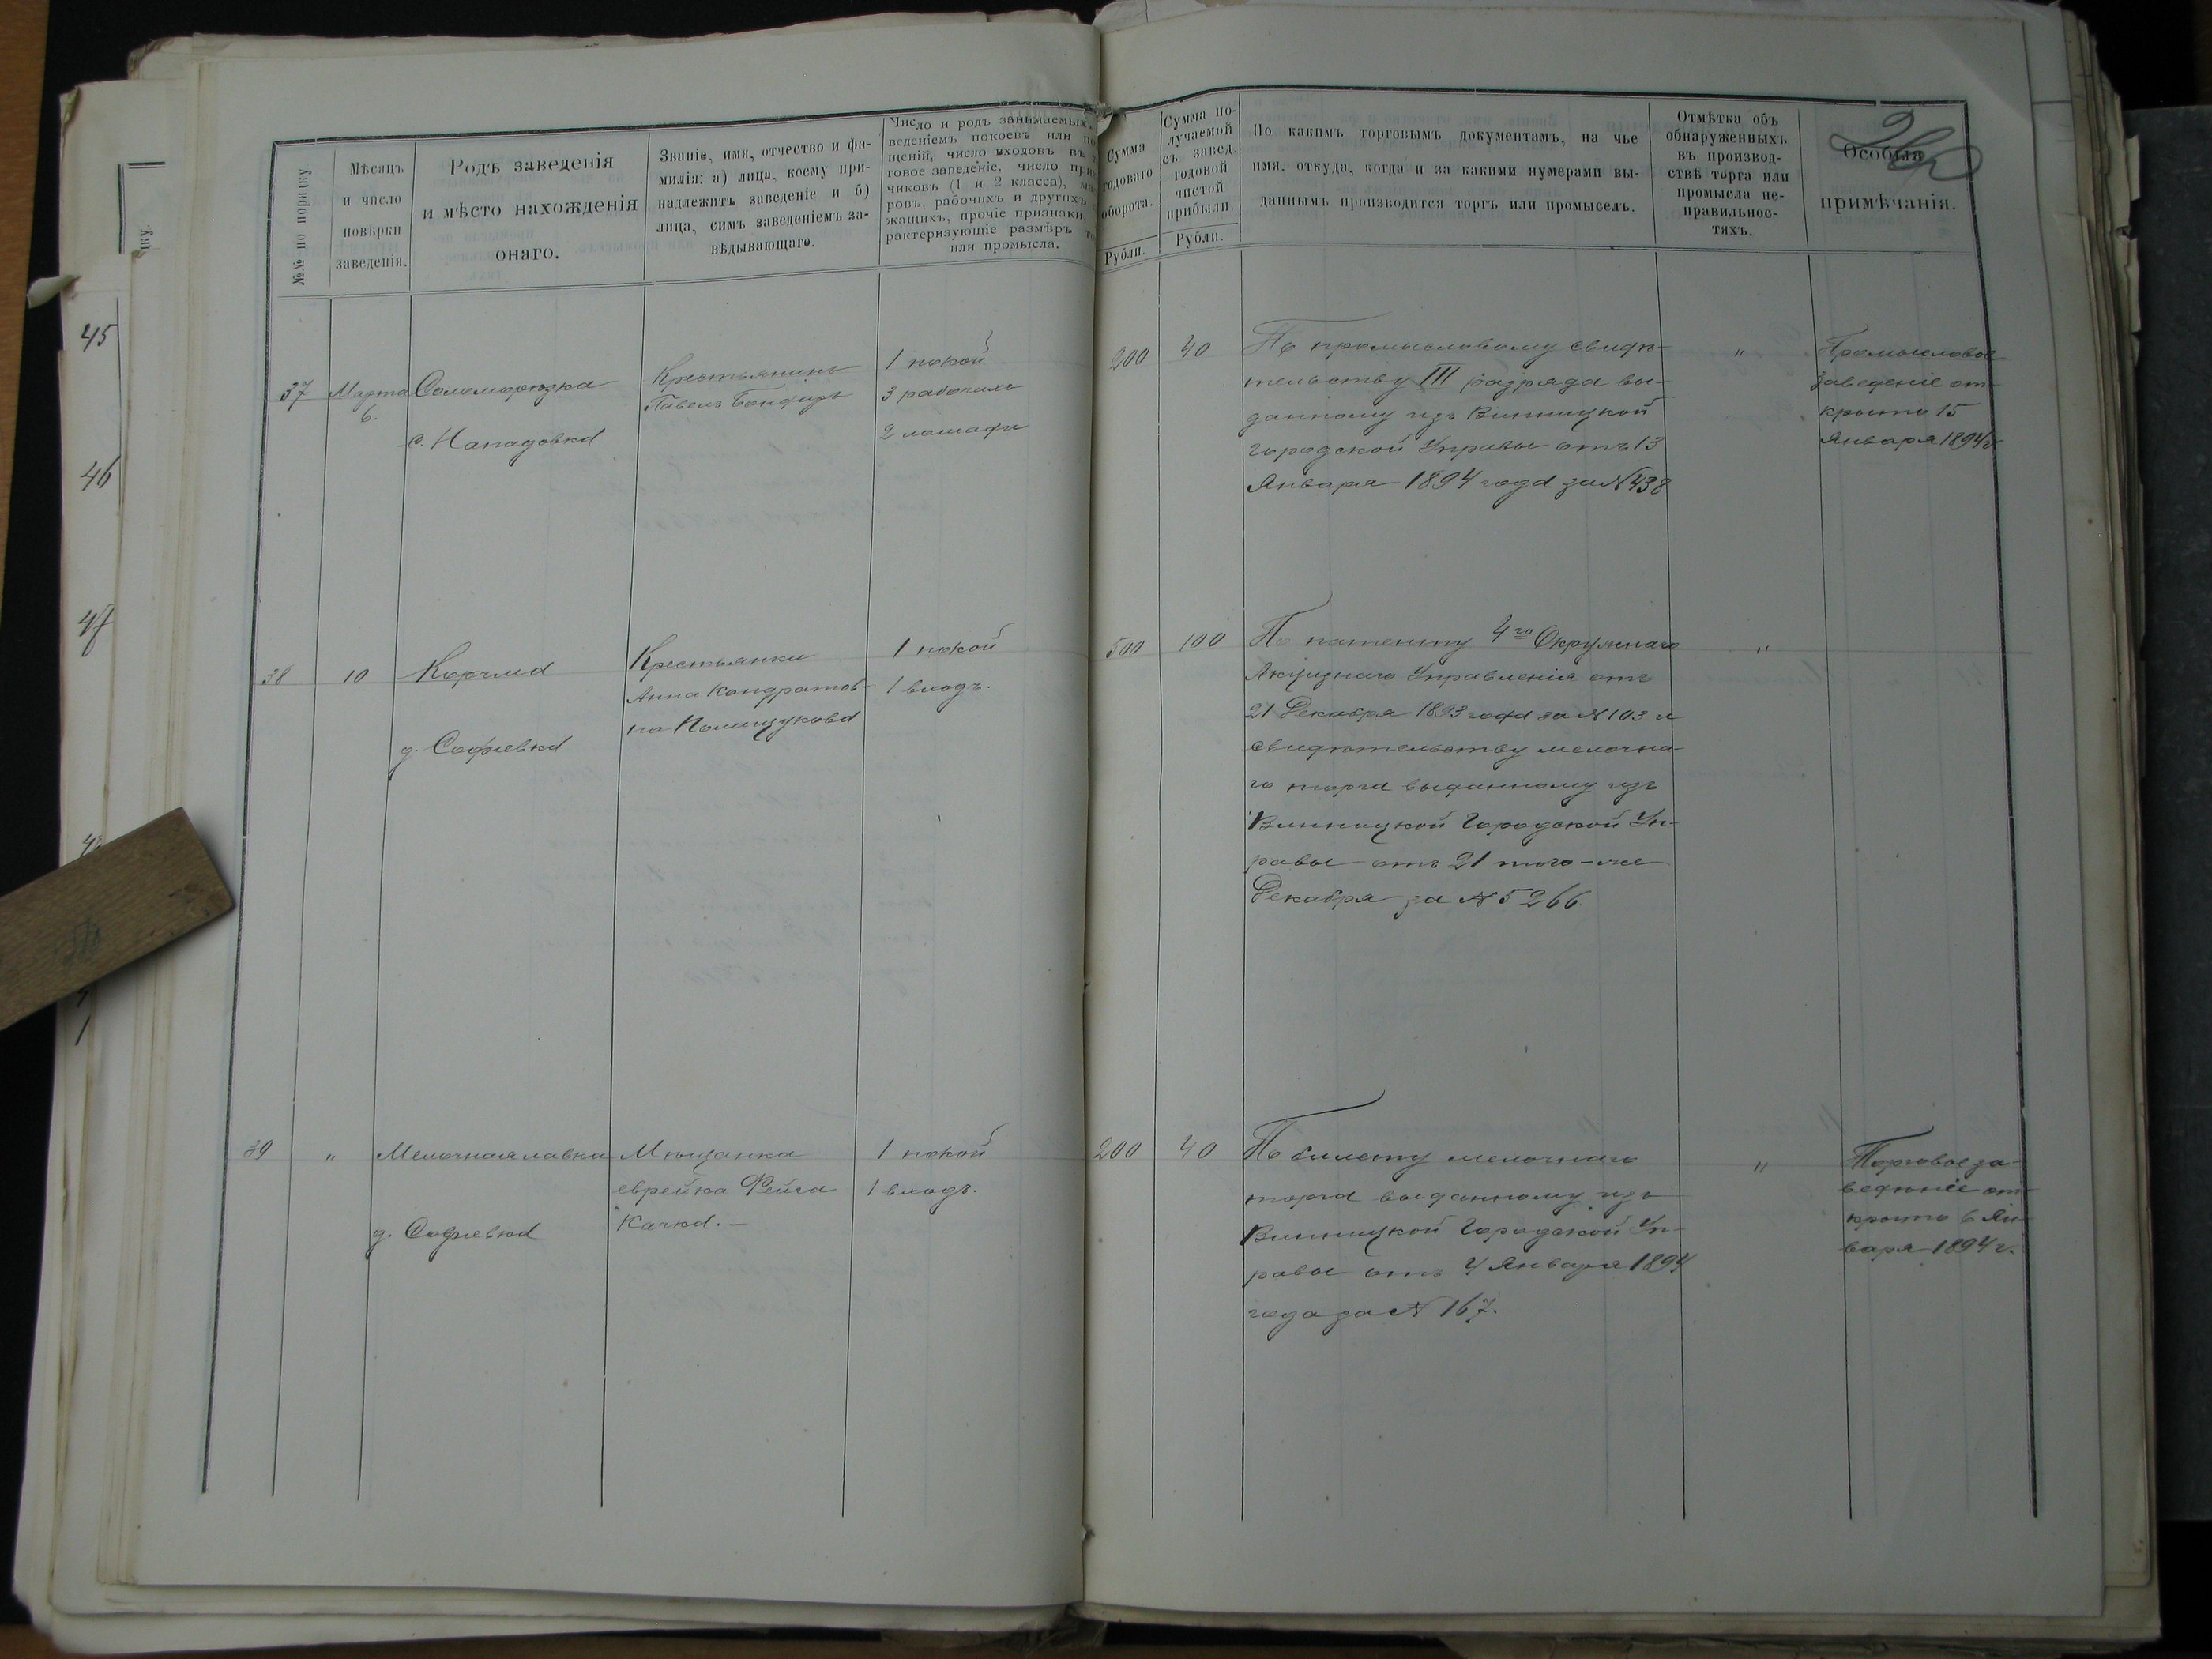 №№ по порядку
Мѣсяцъ
и число
повѣрки
заведенія.
Родъ заведенія
и мѣсто нахожденія
онаго.
Званіе, имя, отчество и фа-
милія: а) лица, коему при-
надлежитъ заведеніе и б)
лица, симъ заведеніемъ за-
вѣдывающаго.
Число и родъ занимаемыхъ
веденіемъ покоевъ или по
щеній, число входовъ въ
говое заведеніе, число при
чиковъ (1 и 2 класса), ма
ровъ, рабочихъ и другихъ
жащихъ, прочіе признаки,
рактеризующіе размѣръ то
или промысла.
Сумма
годоваго
оборота.
Рубли.
Сумма по-
лучаемой
съ завед.
годовой
чистой
прибыли.
Рубли.
По какимъ торговымъ документамъ, на чье
имя, откуда, когда и за какими нумерами вы-
даннымъ производится торгъ или промыселъ.
Отмѣтка объ
обнаруженныхъ
въ производ-
ствѣ торга или
промысла не-
правильнос-
тяхъ.
Особыя
примѣчанія.
45
46
47
37
Марта
6.
Соломорѣзка
с. Нападовка
Крестьянинъ
Павелъ Бондарь
1 покой
3 рабочихъ
2 лошади
200
40
По промысловому свидѣ-
тельству III разряда вы-
данному изъ Винницкой
Городской Управы отъ 13
Января 1894 года за № 438
"
Промысловое
заведеніе от-
крыто 15
Января 1894 г.
38
10
Корчма
д. Софіевка
Крестьянка
Анна Кондратов-
на Полищукова
1 покой
1 входъ.
500
100
По патенту 4го Окружнаго
Акцизнаго Управленія отъ
21 Декабря 1893 года за № 103 и
свидѣтельству мелочна-
го торга выданному изъ
Винницкой Городской Уп-
равы отъ 21 того-же
Декабря за № 5266
"
39
"
Мелочная лавка
д. Софіевка
Мѣщанка
еврейка Фейга
Качка. –
1 покой
1 входъ.
200
40
По билету мелочнаго
торга выданному изъ
Винницкой Городской Уп-
равы отъ 4 Января 1894
года за № 167.
"
Торговое за-
веденіе от-
крыто 6 Ян-
варя 1894 г.